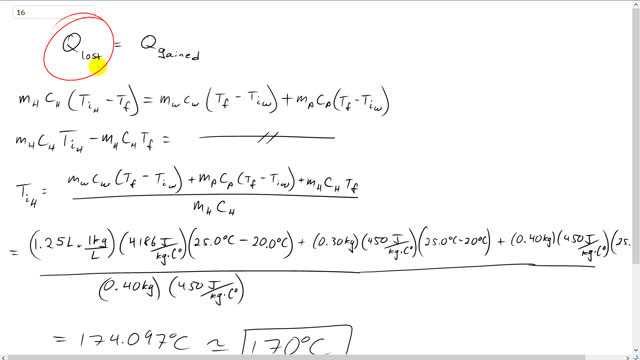 16
Q lost = Q gained
m_H C_H (T_iH - T_f) = m_w c_w (T_f - T_iw) + m_P C_P (T_f - T_iw)
m_H C_H T_iH - m_H C_H T_f = —//—
T_iH = (m_w c_w (T_f - T_iw) + m_P C_P (T_f - T_iw) + m_H C_H T_f) / (m_H C_H)
= (1.25L · 1kg/L) (4186 J/kg·C°) (25.0°C - 20.0°C) + (0.30kg) (450 J/kg·C°) (25.0°C - 20°C) + (0.40kg) (450 J/kg·C°) (25.
(0.40kg) (450 J/kg·C°)
= 174.097°C ≃ 170°C